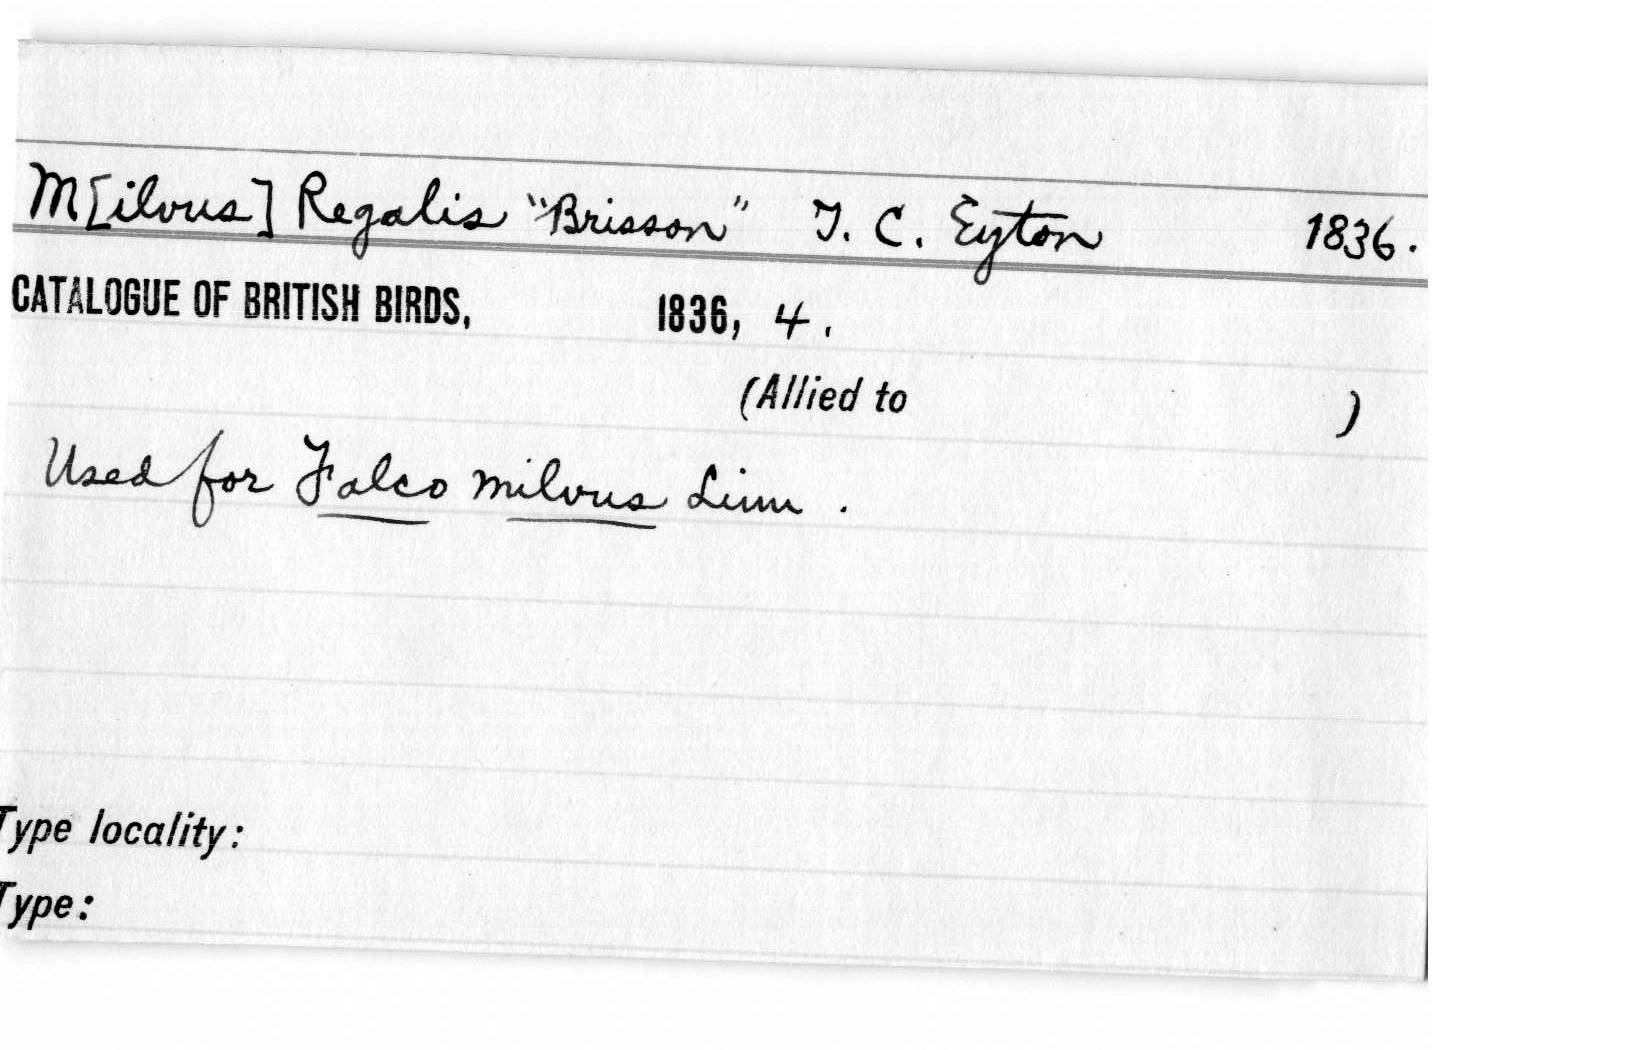 M[ilvus] Regalis "Brisson" T. C. Eyton 1836.
CATALOGUE OF BRITISH BIRDS, 1836, 4.
(Allied to )
Used for Falco milvus Linn.
Type locality:
Type: